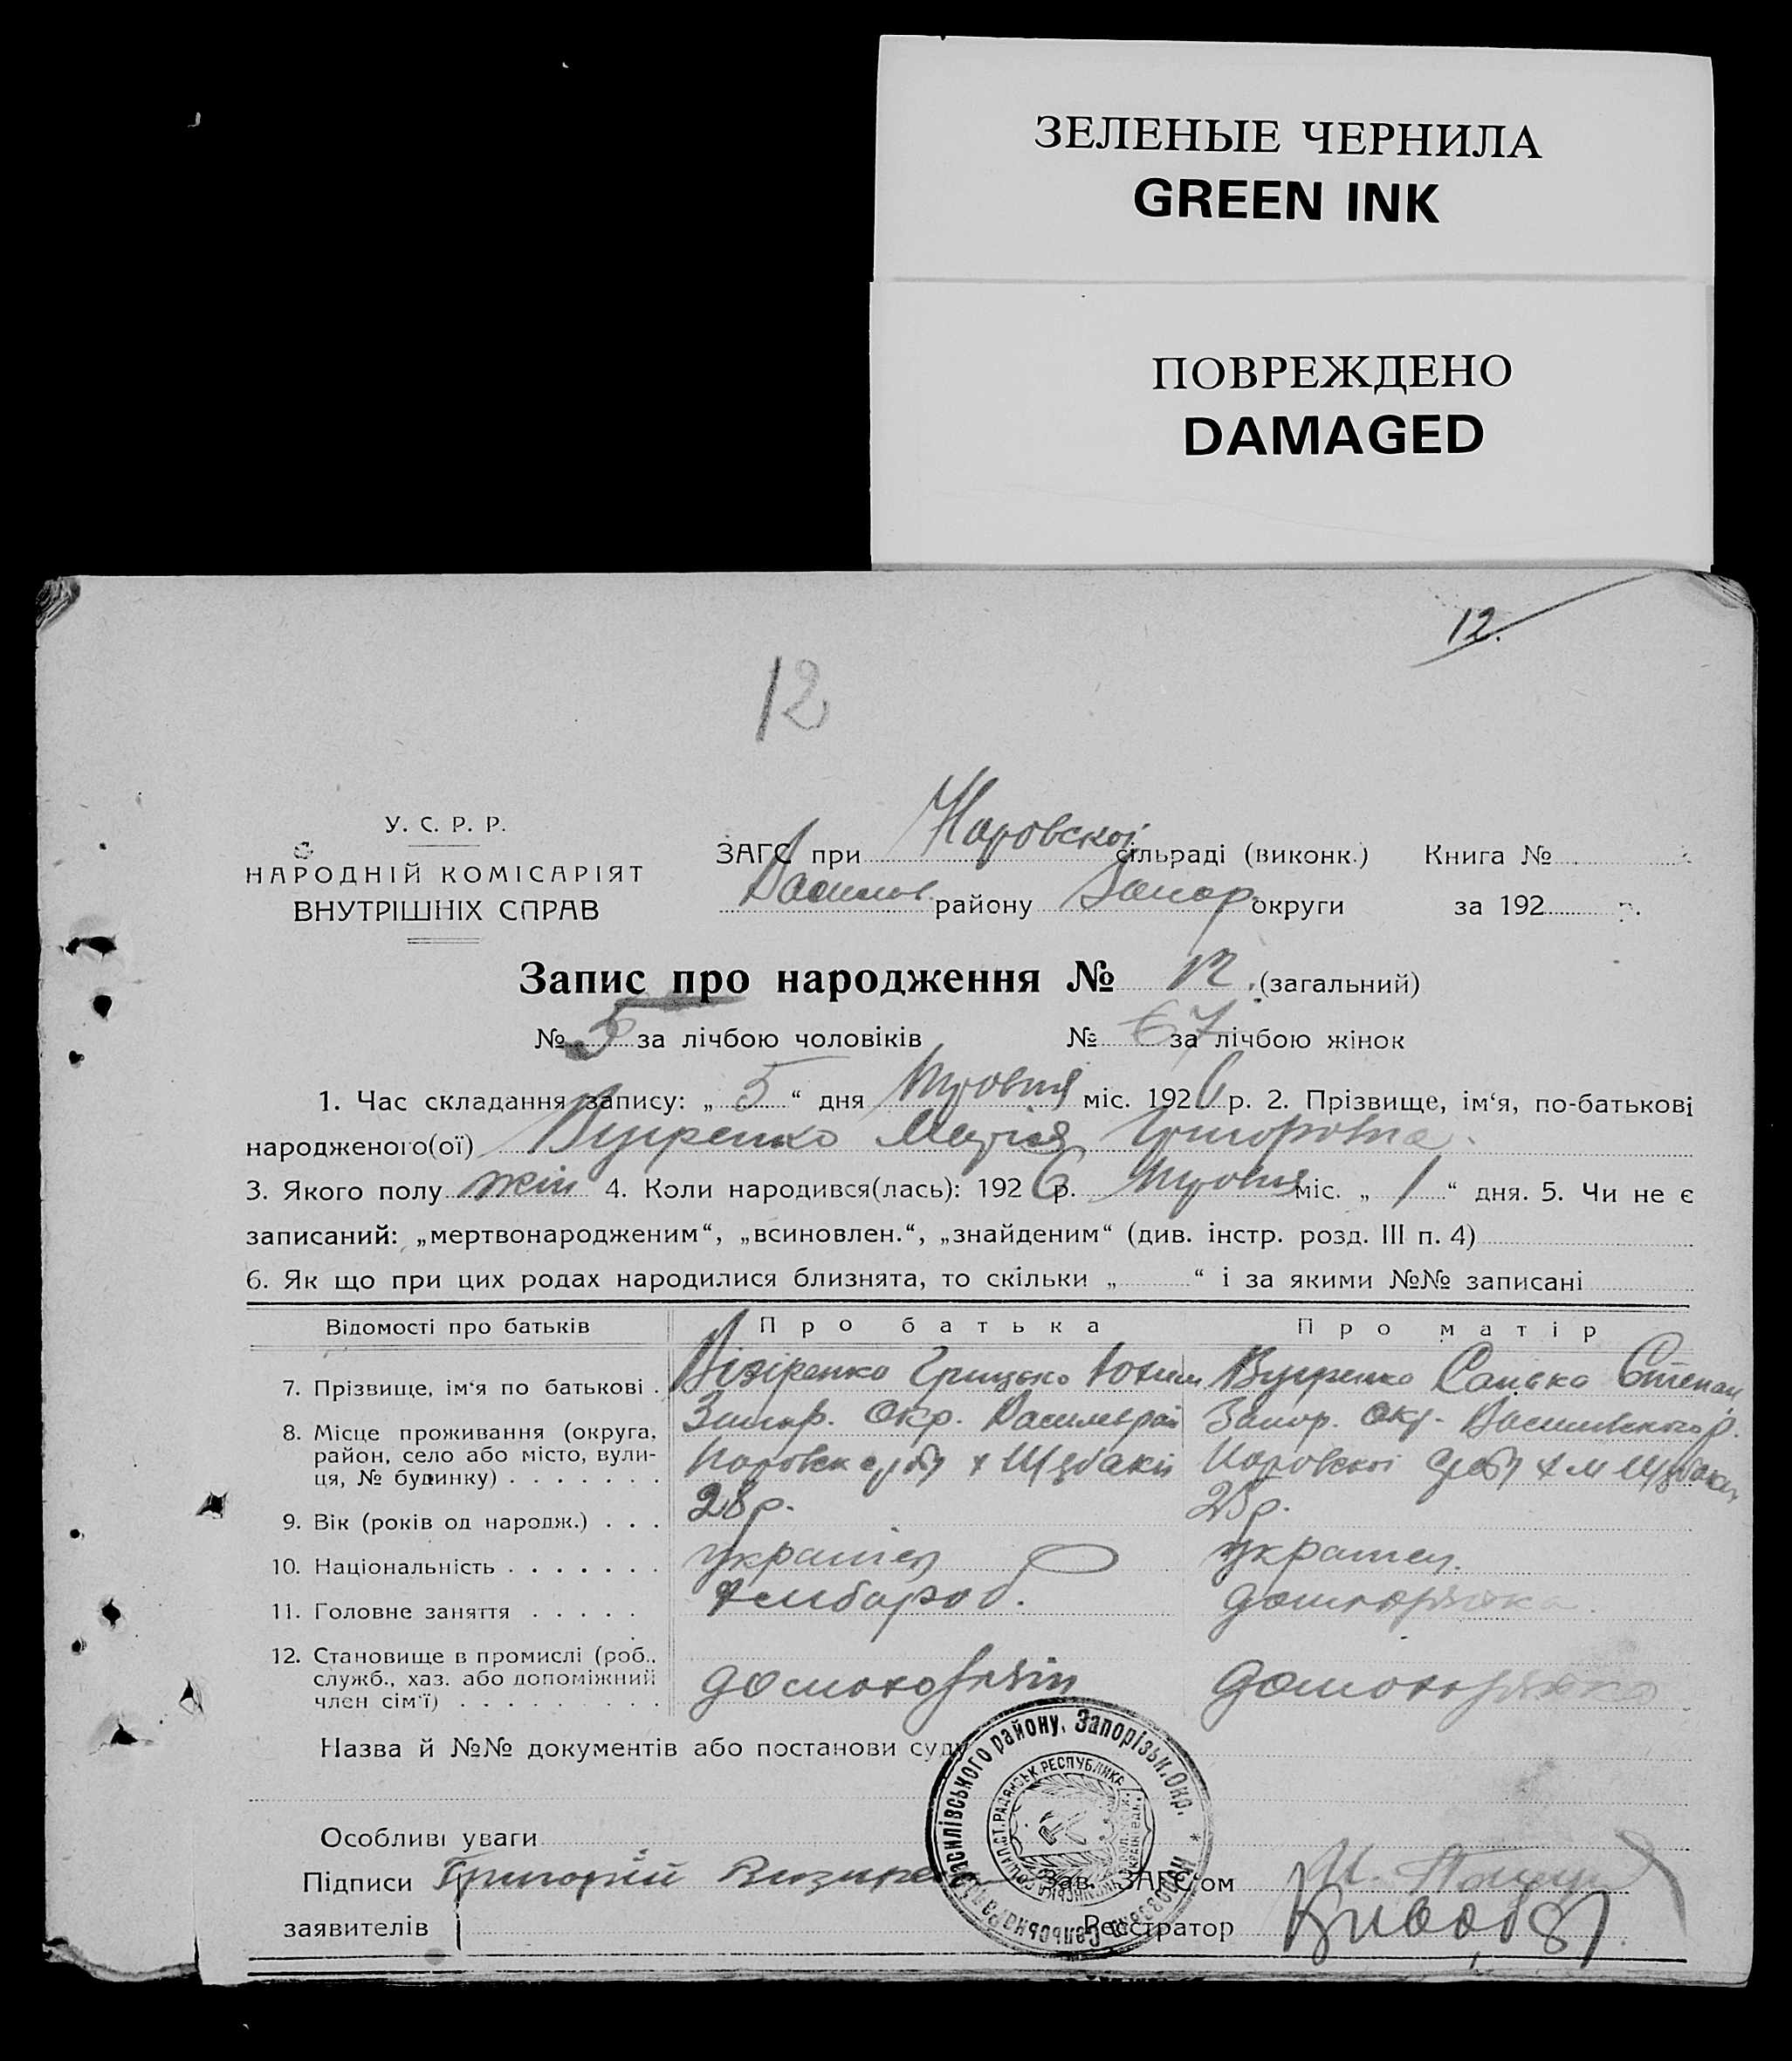 ЗЕЛЕНЫЕ ЧЕРНИЛА
GREEN INK
ПОВРЕЖДЕНО
DAMAGED
12.
12
У. С. Р. Р.
НАРОДНІЙ КОМІСАРІЯТ
ВНУТРІШНІХ СПРАВ
ЗАГС при сільраді (виконк.) Книга №
Василів району Запор округи за 192 р.
Запис про народження № 12 (загальний)
№ 5 за лічбою чоловіків № 7 за лічбою жінок
1. Час складання запису: „ 5 “ дня Травня міс. 1926 р. 2. Прізвище, ім‘я, по-батькові
народженого(ої) Марія Григоровна
3. Якого полу жін 4. Коли народився(лась): 1926 р. Травня міс. „ 1 “ дня. 5. Чи не є
записаний: „мертвонародженим“, „всиновлен.“, „знайденим“ (див. інстр. розд. III п. 4)
6. Як що при цих родах народилися близнята, то скільки „ “ і за якими №№ записані
Відомості про батьків Про батька Про матір
7. Прізвище, ім‘я по батькові . Візіренко Грицько Юхим Санька Степан
8. Місце проживання (округа, район, село або місто, вулиця, № будинку) . . . . . . . Запор. Окр. Запор. Окр.
9. Вік (років од народж.) . . . 28 р. 25 р.
10. Національність . . . . . . . українец українец.
11. Головне заняття . . . . . хлібороб. домохазяйка.
12. Становище в промислі (роб., служб., хаз. або допоміжний член сім‘ї) . . . . . . . . . домохозяїн домохазяйка
Назва й №№ документів або постанови суду
Особливі уваги
Підписи Григорій Визире
заявителів
Зав. ЗАГС‘ом
Реєстратор
Василівського району, Запорізьк. Окр.